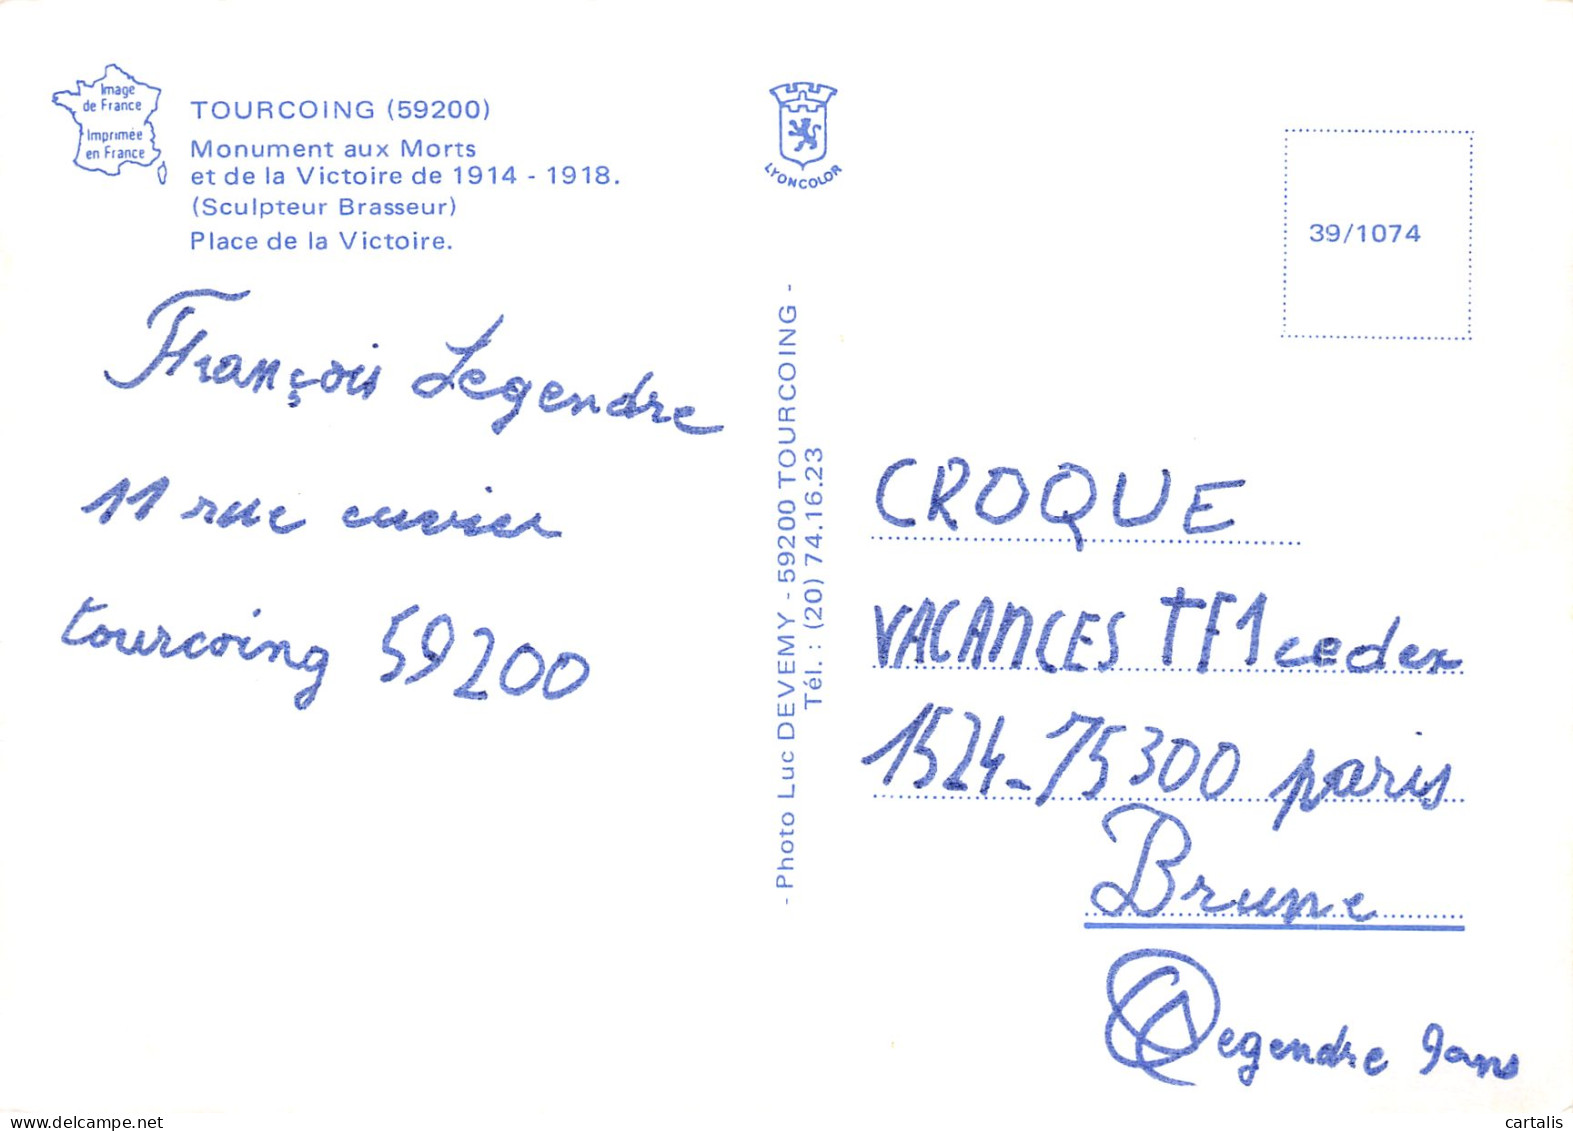 Image
de France
Imprimée
en France
TOURCOING (59200)
Monument aux Morts
et de la Victoire de 1914 - 1918.
(Sculpteur Brasseur)
Place de la Victoire.
François Legendre
11 rue cuvier
tourcoing 59200
LYONCOLOR
- Photo Luc DEVEMY - 59200 TOURCOING -
Tél. : (20) 74.16.23
39/1074
CROQUE
VACANCES TF1 cedex
1524-75300 paris
Brune
Legendre 9ans
www.delcampe.net
cartalis